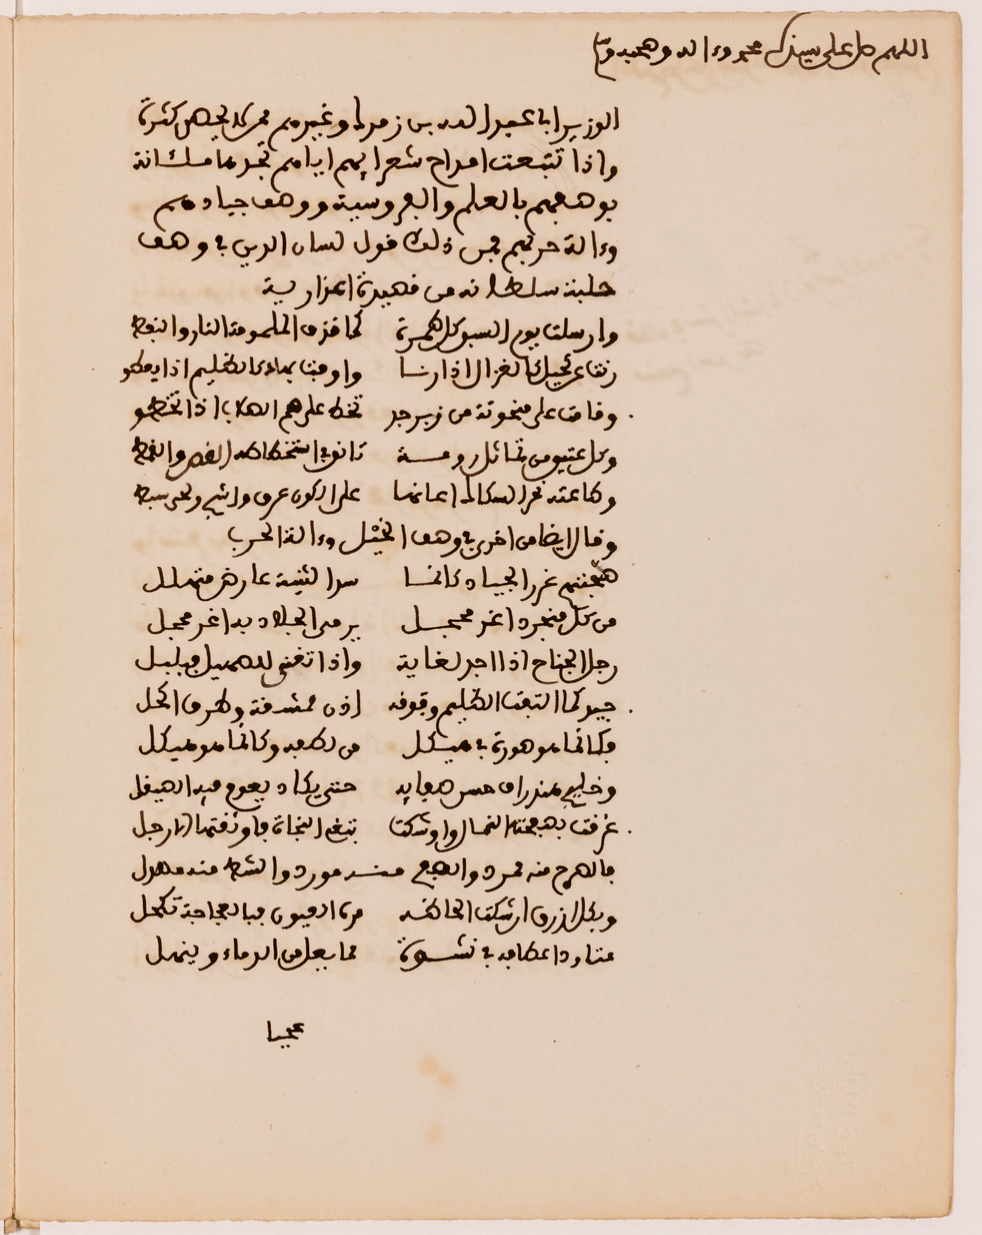 اللهم صل على سيدنا محمد وءاله وصحبه وسلم
الوزير ابي عبد الله بن زمرك وغيرهم ممن لا يحصى كثرة
واذا تتبعت امداح شعرايهم ايامهم تجدها مشحانة
بوصفهم بالعلم والفروسية ووصف جيادهم
وءالة حربهم فمن ذلك قول لسان الدين في وصف
حلبة سلطانه من قصيدة اعزارية
وارسلت يوم السبق كل طمرة كما قذف الملمومة النار والنفط
رنت عن كحيل كالغزال اذا رنا واوفت بهاد كالظليم اذا يعطو
وقامت على منحوتة من زبرجد تخط على صم الصلاب اذا تخطو
وكل عتيق من تماثل رومة تانق في استخطاطه القص والقط
وطاعته نحر السكاك اعانها على الكون عرق واشج ولحى سبط
وقال ايضا من اخرى في وصف الخيل وءالة الحرب
صبحتهم غرر الجياد كانما سد الثنية عارض متهلل
من كل منجرد اغر محجل يرمى الجلاد به اغر محجل
زجل الجناح اذا اجد لغاية واذا تغنى للصهيل فبلبل
جيد كما التفت الظليم وفوقه اذن ممشقة وطرف اكحل
فكانما هو صورة في هيكل من لطفه وكانما هو هيكل
وخليج هند راق حسن صفايه حتى يكاد يعوم فيه الصيقل
غرقت بصفحته النمال واوشكت تبغى النجاة فاوثقتها الارجل
فالصرح منه ممرد والصفح منه مورد والشط منه مهدل
وبكل ازرق ان شكت الحاظه مره العيون فبالعجاجة تكحل
متاود اعطافه في نشوة مما يعل من الدماء وينهل
عجبا